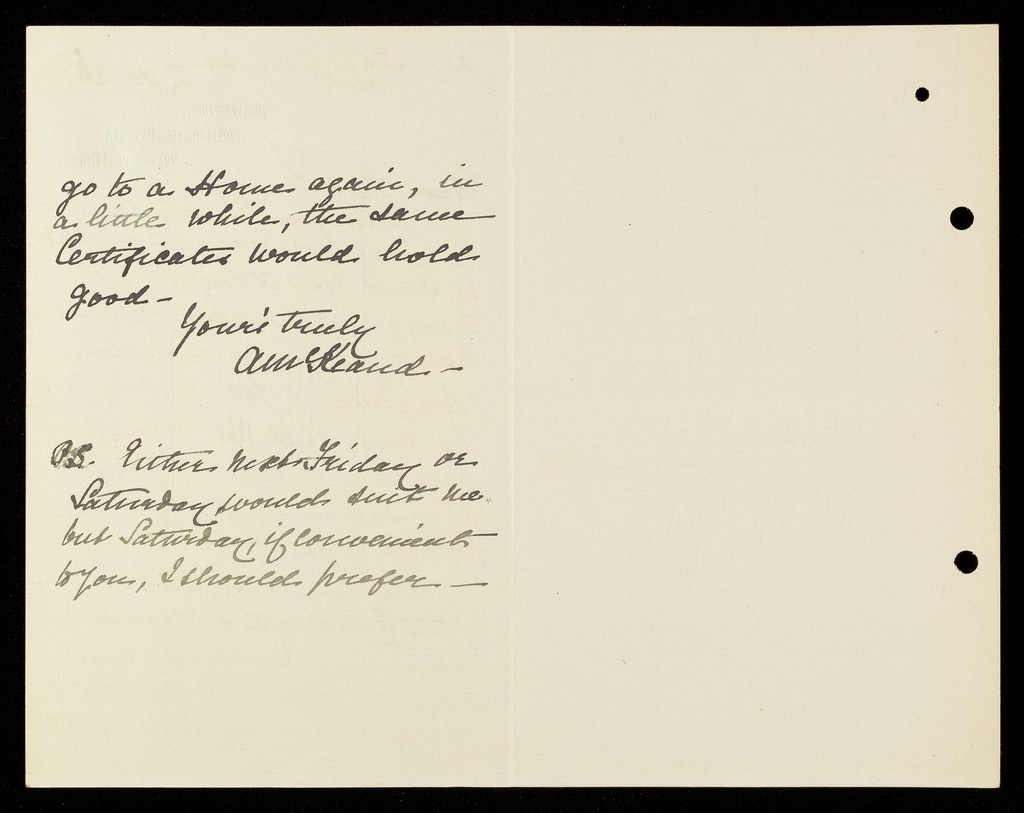 go to a Home again, in
a little while, the same
Certificates would hold
good —
Your's truly
P.S. Either next Friday or
Saturday would suit me.
but Saturday, if convenient
to you, I should prefer —